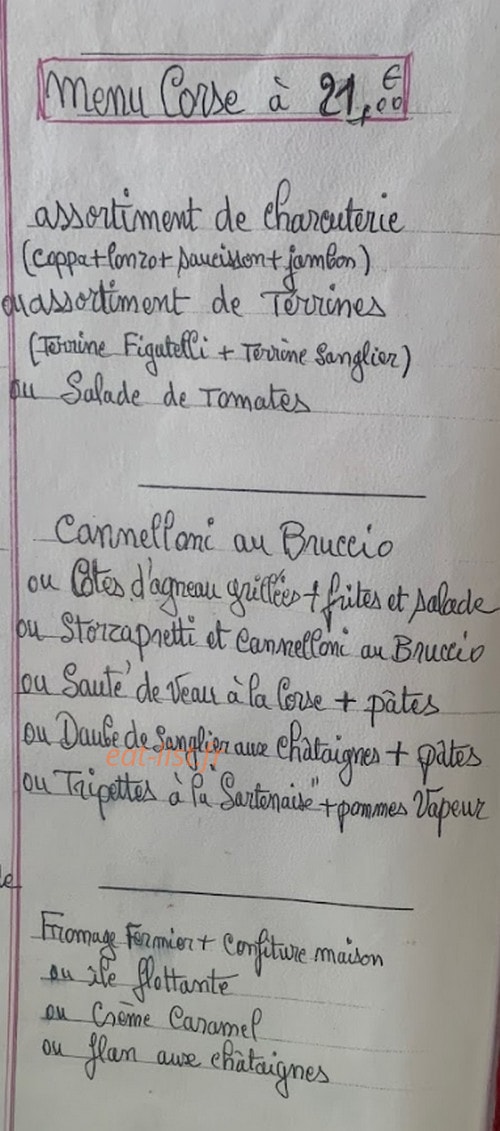 Menu Corse à 21,00 €
assortiment de charcuterie
(coppa+lonzo+saucisson+jambon)
ou assortiment de Terrines
(Terrine Figatelli + Terrine Sanglier)
ou Salade de Tomates
Cannelloni au Bruccio
ou Côtes d'agneau grillées + frites et salade
ou Storzapretti et Cannelloni au Bruccio
ou Sauté de Veau à la Corse + pâtes
ou Daube de Sanglier aux châtaignes + pâtes
eat-list.fr
ou Tripettes à la Sartenaise" + pommes Vapeur
Fromage Fermier + confiture maison
ou île flottante
ou Crème Caramel
ou flan aux châtaignes